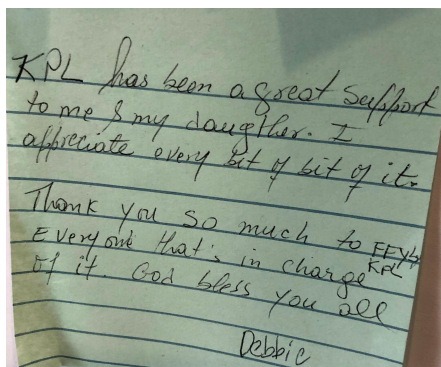 KPL has been a great support
to me & my daugther. I
appreciate every bit of bit of it.
Thank you so much to
Everyone that's in charge KPL
of it. God bless you all
Debbie